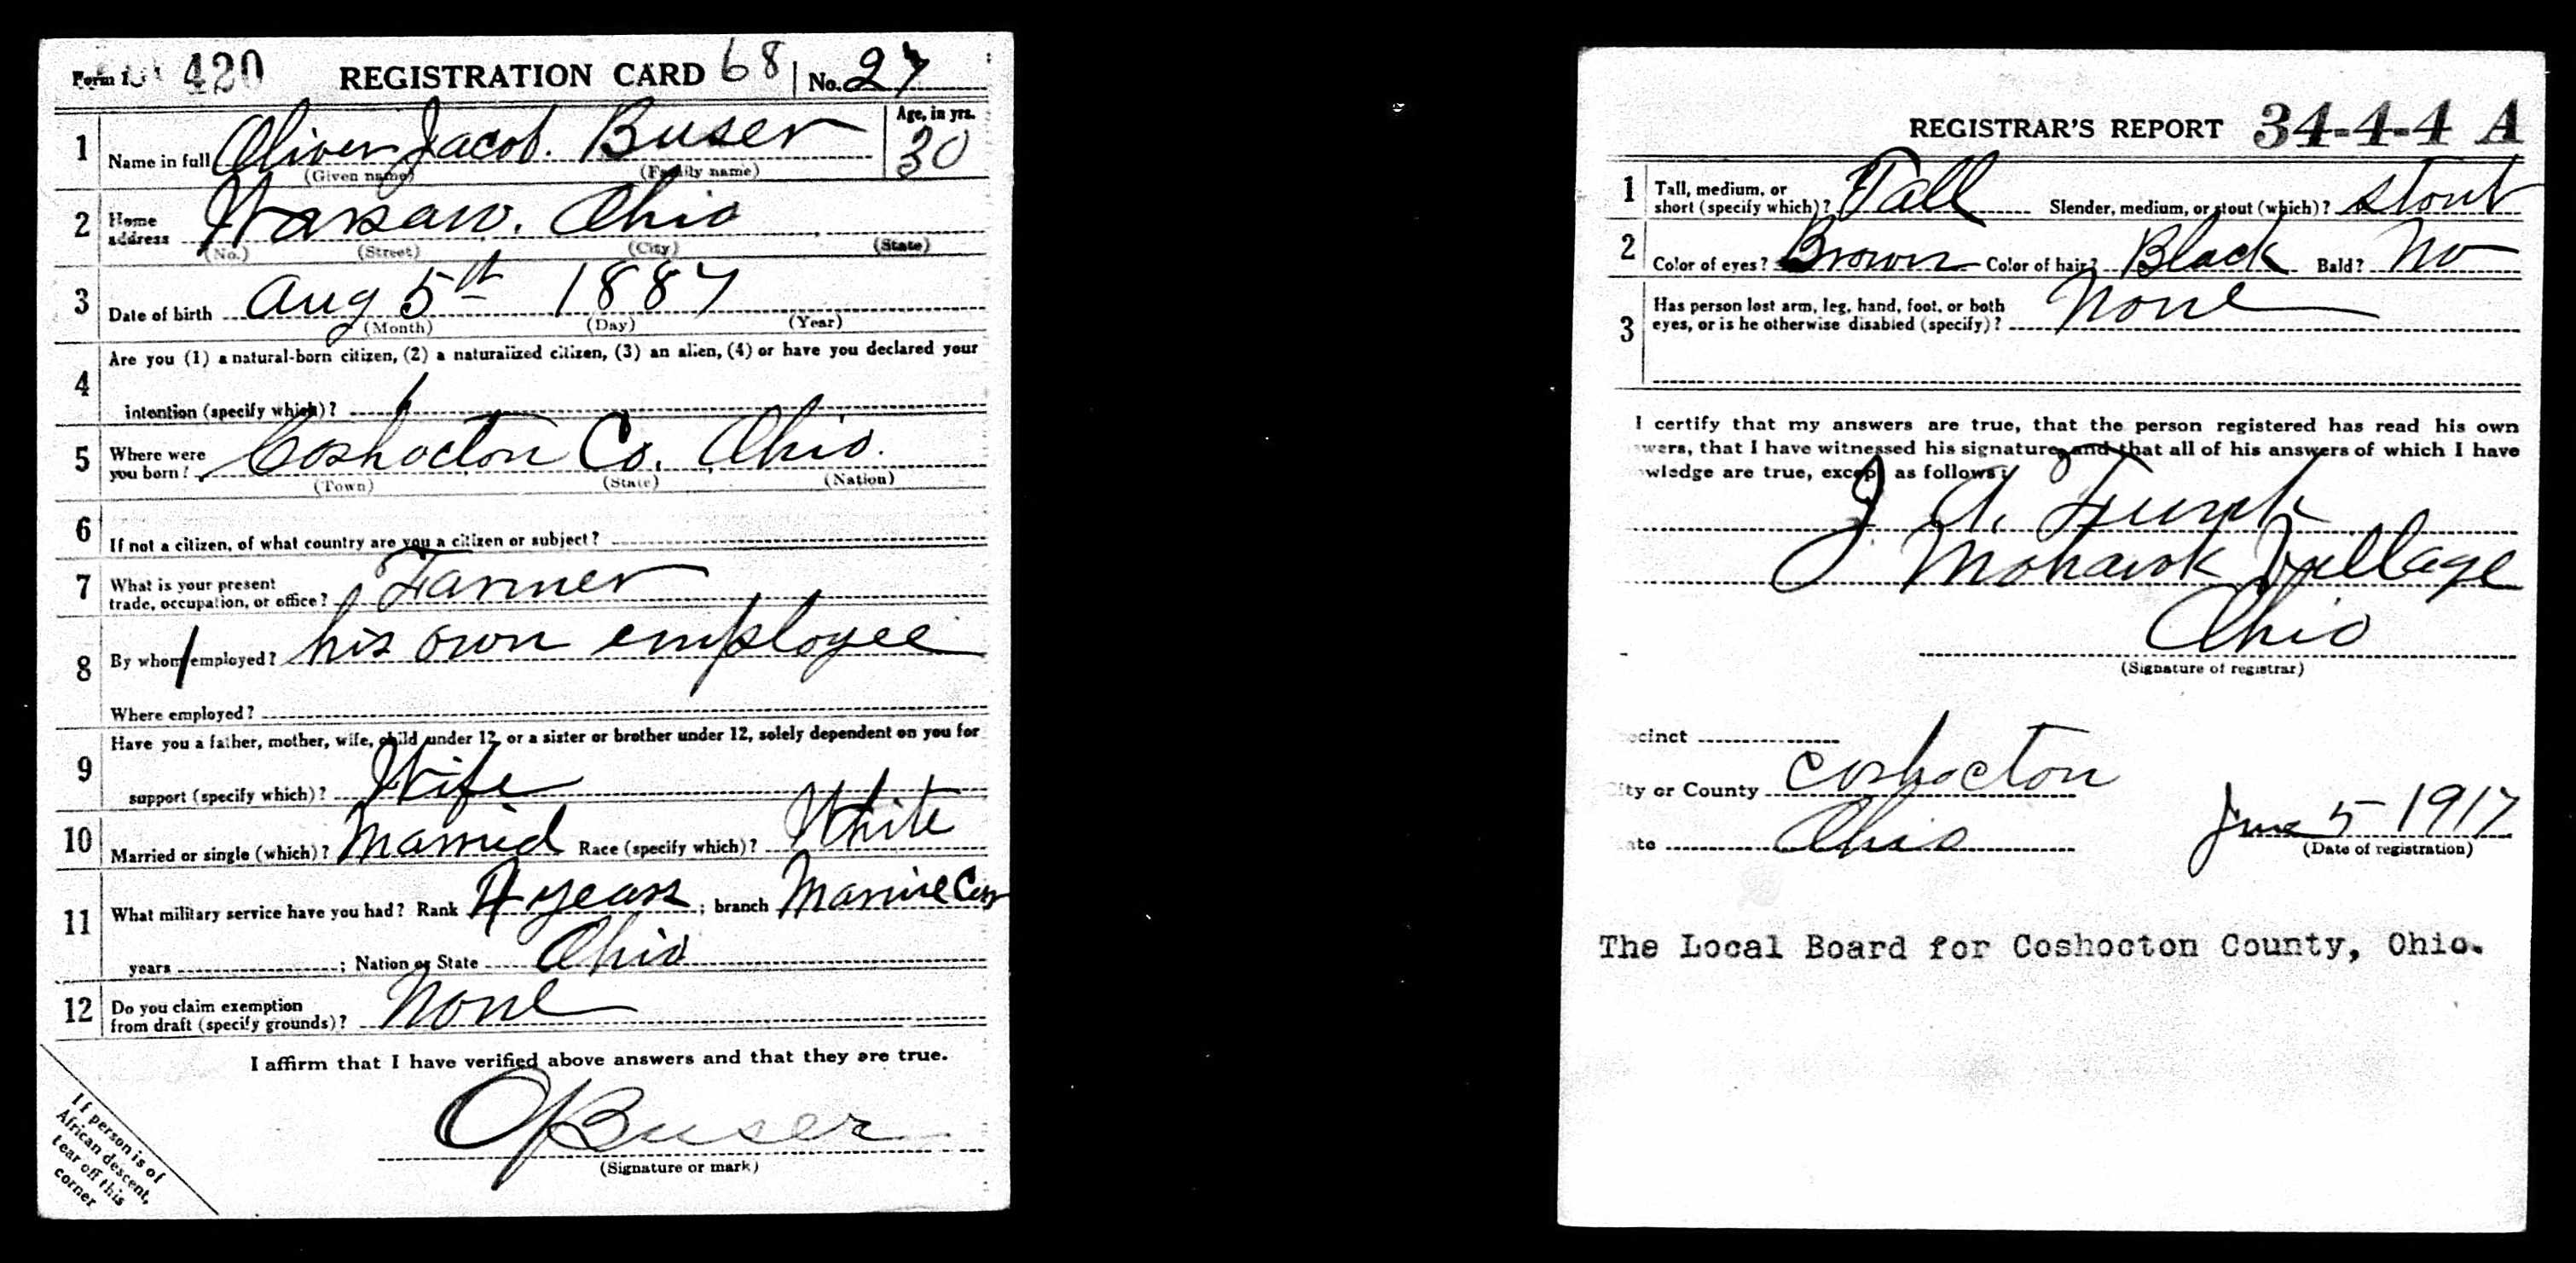 Form 1 420 REGISTRATION CARD 68 No. 27
1 Name in full Oliver Jacob. Buser Age, in yrs. 30
(Given name) (Family name)
2 Home address Warsaw. Ohio
(No.) (Street) (City) (State)
3 Date of birth Aug 5th 1887
(Month) (Day) (Year)
4 Are you (1) a natural-born citizen, (2) a naturalized citizen, (3) an alien, (4) or have you declared your
intention (specify which)? 1
5 Where were you born? Coshocton Co. Ohio.
(Town) (State) (Nation)
6 If not a citizen, of what country are you a citizen or subject?
7 What is your present trade, occupation, or office? Farmer
8 By whom employed? his own employee
Where employed?
9 Have you a father, mother, wife, child under 12, or a sister or brother under 12, solely dependent on you for
support (specify which)? Wife
10 Married or single (which)? Married Race (specify which)? White
11 What military service have you had? Rank 4 years ; branch Marine Corp
years ; Nation or State Ohio
12 Do you claim exemption from draft (specify grounds)? None
I affirm that I have verified above answers and that they are true.
OJ Buser
(Signature or mark)
If person is of
African descent,
tear off this
corner
REGISTRAR'S REPORT 34-4-4 A
1 Tall, medium, or short (specify which)? Tall Slender, medium, or stout (which)? stout
2 Color of eyes? Brown Color of hair? Black Bald? No
3 Has person lost arm, leg, hand, foot, or both eyes, or is he otherwise disabled (specify)? None
I certify that my answers are true, that the person registered has read his own
wers, that I have witnessed his signature, and that all of his answers of which I have
wledge are true, except as follows:
J A. Funk
Mohawk Village
Ohio
(Signature of registrar)
ecinct
ity or County Coshocton
ate Ohio June 5 1917
(Date of registration)
The Local Board for Coshocton County, Ohio.